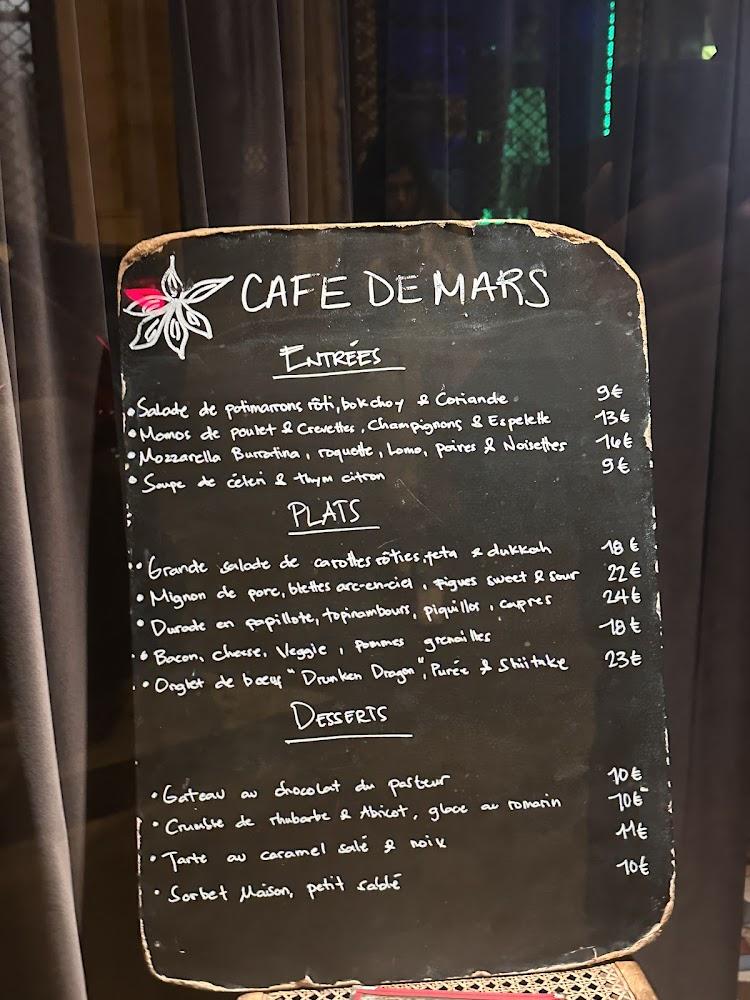 CAFE DE MARS
ENTRÉES
• Salade de potimarrons rôti, bok choy & Coriande 9€
• Momos de poulet & Crevettes, Champignons & Espelette 13€
• Mozzarella Burratina, roquette, Lomo, poires & Noisettes 16€
• Soupe de céleri & thym citron 9€
PLATS
• Grande salade de carottes rôties, feta & dukkah 18€
• Mignon de porc, blettes arc-en-ciel, figues sweet & sour 22€
• Daurade en papillote, topinambours, piquillos, capres 24€
• Bacon, cheese, Veggie, pommes grenailles 18€
• Onglet de boeuf "Drunken Dragon", Purée & Shiitake 23€
DESSERTS
• Gateau au chocolat du pasteur 10€
• Crumble de rhubarbe & Abricot, glace au romarin 10€
• Tarte au caramel salé & noix 11€
• Sorbet Maison, petit sablé 10€